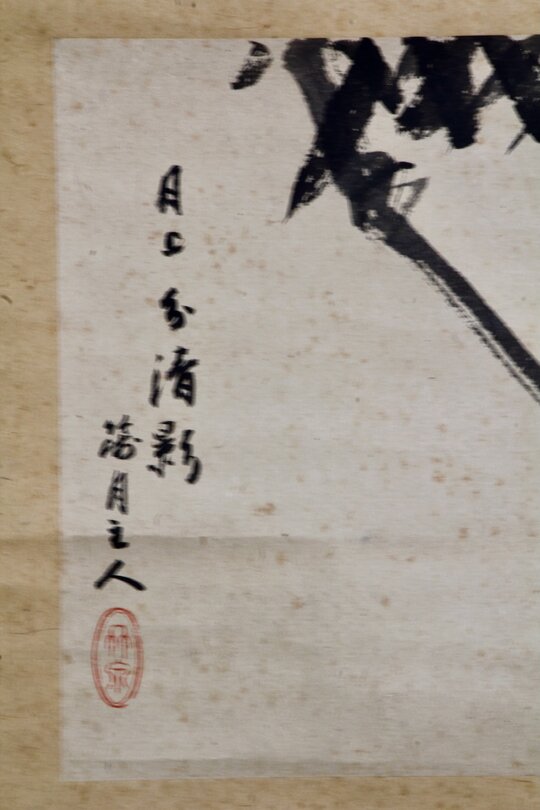 月上分清影
月主人